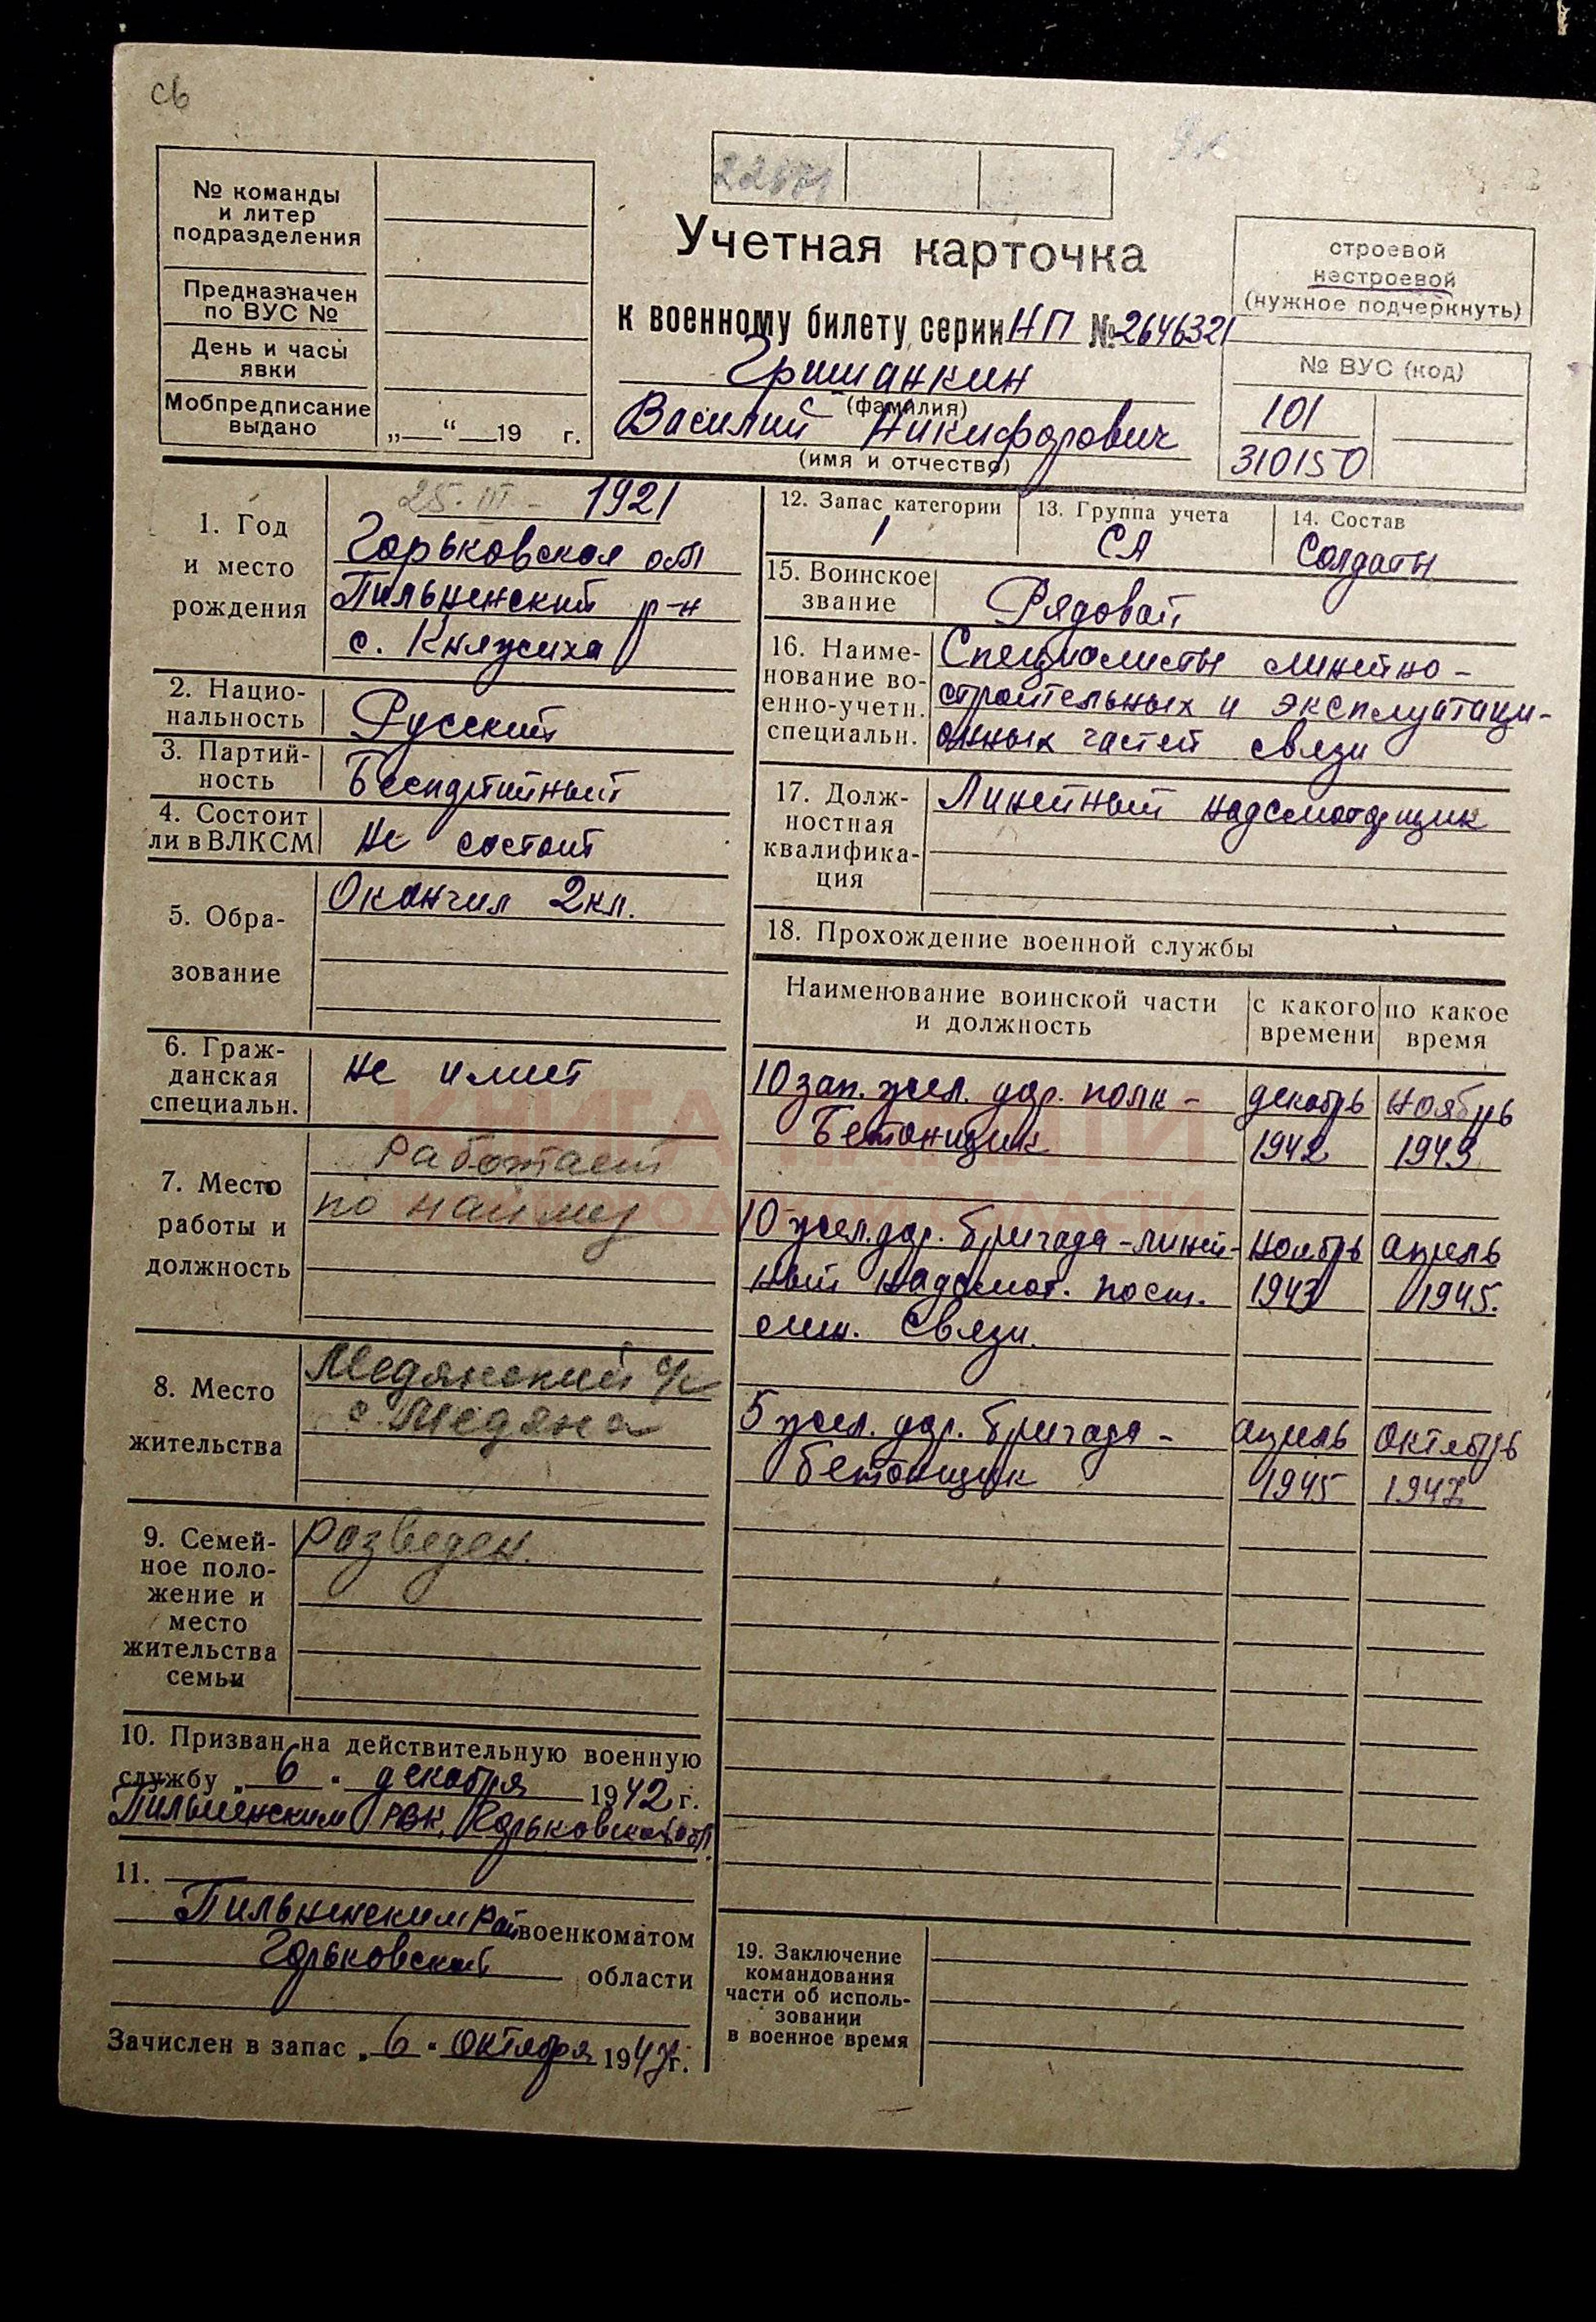 св
№ команды
и литер
подразделения
Предназначен
по ВУС №
День и часы
явки
Мобпредписание
выдано
„ “ 19 г.
Учетная карточка
к военному билету серии НП № 2646321
Гришанкин
(фамилия)
Василий Никифорович
(имя и отчество)
строевой
нестроевой
(нужное подчеркнуть)
№ ВУС (код)
101
310150
1. Год
и место
рождения
25-III- 1921
Горьковская обл
Пильненский р-н
с. Княжиха
2. Нацио-
нальность
Русский
3. Партий-
ность
Беспартийный
4. Состоит
ли в ВЛКСМ
Не состоит
5. Обра-
зование
Окончил 2кл.
6. Граж-
данская
специальн.
не имеет
7. Место
работы и
должность
Работает
по найму
8. Место
жительства
Медянский с/с
с. Медяна
9. Семей-
ное поло-
жение и
место
жительства
семьи
Разведен.
10. Призван на действительную военную
службу „ 6 " декабря 1942 г.
Пильненским РВК, Горьковской обл.
11.
Пильненским Рай военкоматом
Горьковской области
Зачислен в запас „ 6 " октября 1947 г.
12. Запас категории
1
13. Группа учета
СА
14. Состав
Солдаты
15. Воинское
звание
Рядовой
16. Наиме-
нование во-
енно-учетн.
специальн.
Специалисты линейно-
строительных и эксплуатаци-
онных частей связи
17. Долж-
ностная
квалифика-
ция
Линейный надсмотрщик
18. Прохождение военной службы
Наименование воинской части
и должность
с какого
времени
по какое
время
10 зап. жел. дор. полк - декабрь ноябрь
Бетонщик 1942 1943
10 жел. дор. бригада - линей- ноябрь апрель
ный надсмот. пост. 1943 1945.
лин. связи.
5 жел. дор. бригада - апрель октябрь
бетонщик 1945 1947
19. Заключение
командования
части об исполь-
зовании
в военное время
КНИГА ПАМЯТИ
НИЖЕГОРОДСКОЙ ОБЛАСТИ